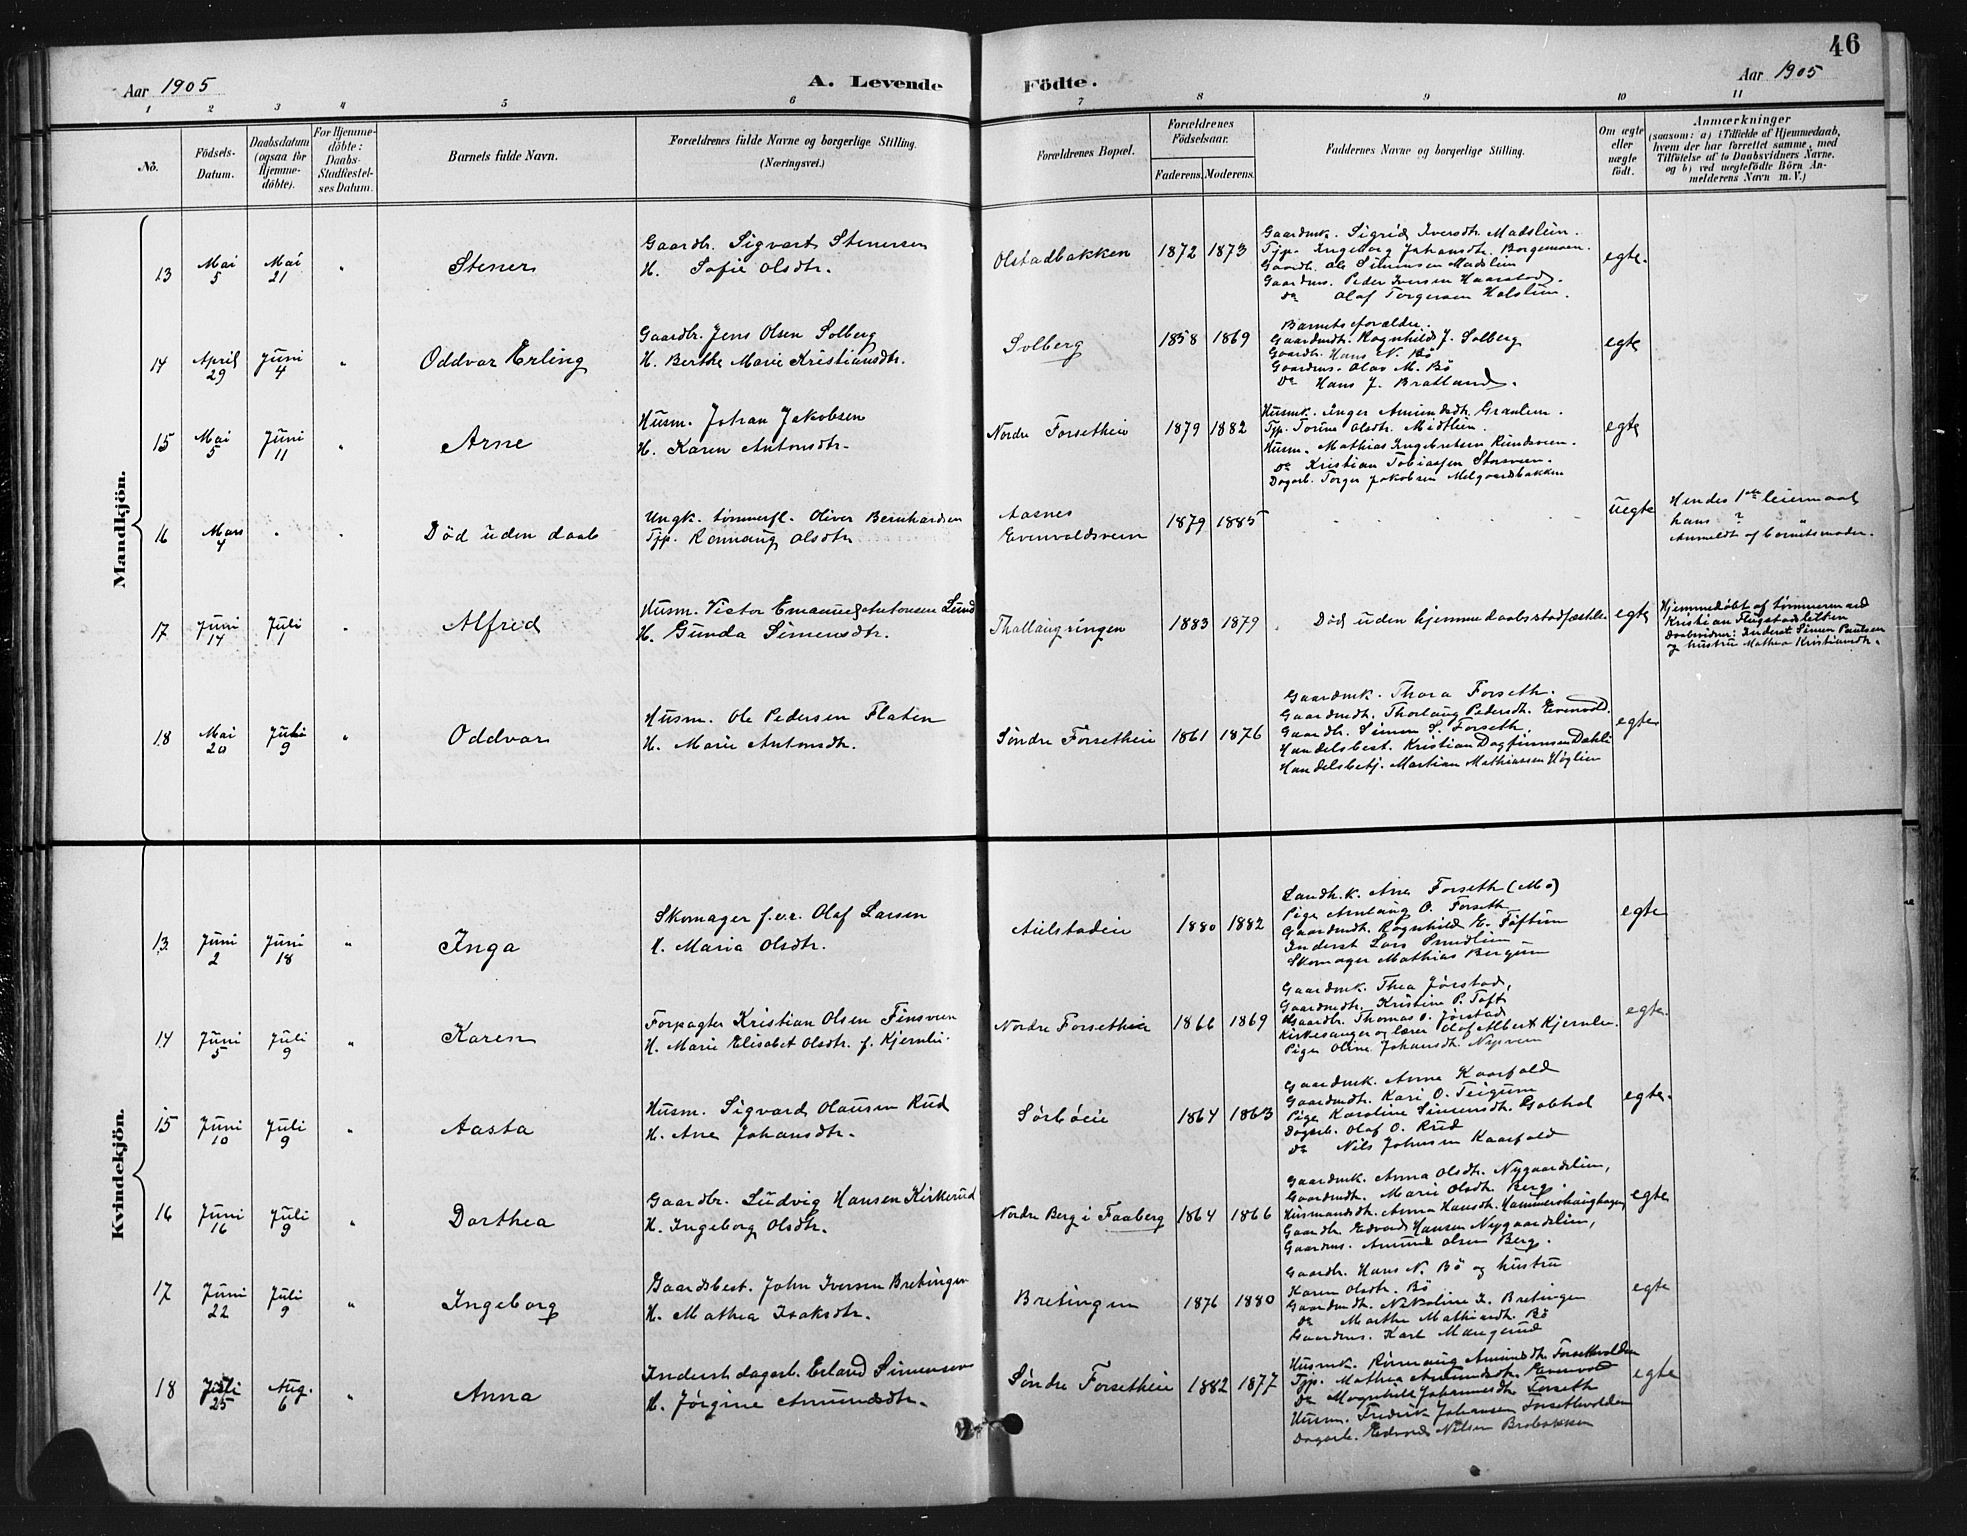 46
Aar 1905
A. Levende Födte.
Aar 1905
1 2 3 4 5 6 7 8 9 10 11
No.
Födsels-Datum.
Daabsdatum (ogsaa for Hjemme-döbte).
For Hjemme-döbte: Daabs-Stadfæstel-ses Datum.
Barnets fulde Navn.
Forældrenes fulde Navne og borgerlige Stilling.
(Næringsvei.)
Forældrenes Bopæl.
Forældrenes Födselsaar.
Faderens. Moderens.
Faddernes Navne og borgerlige Stilling.
Om ægte eller uægte födt.
Anmærkninger
(saasom: a) i Tilfælde af Hjemmedaab,
hvem der har forrettet samme, med
Tilföielse af to Daabsvidners Navne,
og b) ved uægtefödte Börn An-
melderens Navn m. V.)
Mandkjön.
13 Mai 5 Mai 21 " Stener
Gaardbr. Sigvart Stenersen
H. Sofie Olsdtr.
Olstadbakken 1872 1873
Gaardmk. Sigrid Iversdtr. Madslien.
Tjp. Ingeborg Johansdtr. Borgemoen.
Gaardb. Ole Simensen Madslien
Gaardms. Peder Iversen Haarstad.
Do Olaf Torgersen Holslien.
egte.
14 April 29 Juni 4 " Oddvar Erling
Gaardbr. Jens Olsen Solberg
H. Berthe Marie Kristiansdtr.
Solberg 1858 1869
Barnets forældre.
Gaardmdt. Ragnhild J. Solberg
Gaardb. Hans N. Bö
Gaardms. Olav M. Bö
Do Hans J. Bratland.
egte
15 Mai 5 Juni 11 " Arne
Husm. Johan Jakobsen
H. Karen Antonsdtr.
Nordre Forsetheie 1879 1882
Husmk. Inger Amundsdtr. Granlien.
Tjp. Torine Olsdtr. Midtlien.
Husm. Mathias Ingebretsen Rundsveen.
Do Kristian Tobiassen Storsveen.
Dagarb. Torger Jakobsen Melgaardsbakken
egte
16 Mars 4 " " Död uden daab
Ungk. tømmerfl. Oliver Bernhardsen
Tjp. Rønnaug Olsdtr
Aasnes
Evenvoldsveen
1879 1885
uegte
Hendes 1ste leiermaal
hans ? "
Anmeldt af barnets moder.
17 Juni 14 Juli 1 " Alfred
Husm. Victor Emanuel Antonsen Lund
H. Gunda Simensdtr.
Thallaugringen 1883 1879
Död uden hjemmedaabsstadfæstelse
egte
Hjemmedøbt af tømmermand
Kristian Flugstadsletten
Daabsvidner: Inderst Simen Paulsen
og hustru Mathea Kristiansdtr.
18 Mai 20 Juli 9 " Oddvar
Husm. Ole Pedersen Flaten
H. Marie Antonsdtr.
Søndre Forsetheie 1861 1876
Gaardmk. Thora Forseth.
Gaardmdt. Thorlaug Pedersdtr. Evenvold.
Gaardb. Simen S. Forseth
Handelsbest. Kristian Dagfinnsen Dahle
Handelsbetj. Martian Mathiassen Höglien
egte
Kvindekjön.
13 Juni 2 Juni 18 " Inga
Skomager f.v.r. Olaf Larsen
H. Maria Olsdtr.
Aulstadeie 1880 1882
Landh.k. Ane Forseth (Mo)
Pige Amlaug O. Forseth
Gaardmdt. Ragnhild E. Toftum
Inderst Lars Smedlien
Skomager Mathias Bergum
egte
14 Juni 5 Juli 9 " Karen
Forpagter Kristian Olsen Finsveen
H. Marie Elisabet Olsdtr. f. Kjernlie.
Nordre Forsetheie 1866 1869
Gaardmk. Thea Jørstad,
Gaardmdt. Kristine P. Toft
Gaardbr. Thomas O. Jørstad
Kirkesanger og lærer Olaf Albert Kjernlie.
Pige Oline Johansdtr. Nysveen
egte.
15 Juni 10 Juli 9 " Aasta
Husm. Sigvard Olausen Rud
H. Ane Johansdtr.
Sørböeie 1864 1863
Gaardmk. Anne Kaarfald
Gaardmdt. Kari O. Teigum
Pige Karoline Simensdtr.
Dagarb. Olaf O. Rud
Do Nils Johnsen Kaarfald
egte.
16 Juni 16 Juli 9 " Dorthea
Gaardbr. Ludvig Hansen Kirkerud
H. Ingeborg Olsdtr.
Nordre Berg i Faaberg 1864 1866
Gaardmk. Anna Olsdtr. Nygaardslien,
Gaardmdt. Marie Olsdtr. Berg.
Husmandsdt. Anna Hansdtr. Hammershaughagen
Gaardbr. Edvard Hansen Nygaardslien,
Gaardms. Amund Olsen Berg.
egte
17 Juni 22 Juli 9 " Ingeborg
Gaardsbest. John Iversen Bretingen
H. Mathea Isaksdtr.
Bretingen 1876 1880
Gaardbr. Hans N. Bö og hustru
Karen Olsdtr. Bö
Gaardmdt. Nikoline I. Bretingen
Do Marthe Mathiasdtr. Bö
Gaardms. Karl Mangrud
egte
18 Juli 25 Aug. 6 " Anna
Inderst dagarb. Erland Simensen
H. Jørgine Amundsdtr.
Søndre Forsetheie 1882 1877
Husmk. Rønnaug Amundsdtr. Forsethvolden
Tjp. Mathea Amundsdtr. Evenvold
Do Magnhild Johannesdtr. Forseth
Husm. Fredrik Johansen Forsethvolden
Dagarb. Edvard Nilsen Brobakken
egte